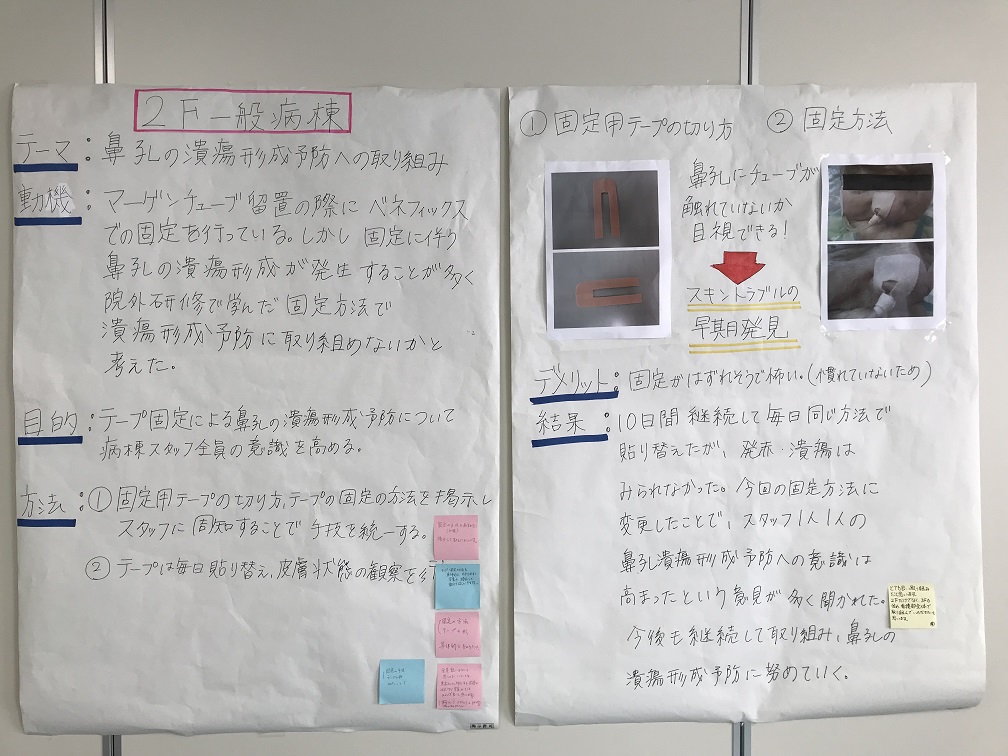 2F一般病棟
テーマ：鼻孔の潰瘍形成予防への取り組み
動機：マーゲンチューブ留置の際にベネフィックス
での固定を行っている。しかし固定に伴う
鼻孔の潰瘍形成が発生することが多く
院外研修で学んだ固定方法で
潰瘍形成予防に取り組めないかと
考えた。
目的：テープ固定による鼻孔の潰瘍形成予防について
病棟スタッフ全員の意識を高める。
方法：①固定用テープの切り方、テープの固定の方法を掲示し
スタッフに周知することで手技を統一する。
②テープは毎日貼り替え、皮膚状態の観察を
①固定用テープの切り方 ②固定方法
鼻孔にチューブが
触れていないか
目視できる！
スキントラブルの
早期発見
デメリット：固定がはずれそうで怖い。(慣れていないため)
結果：10日間継続して毎日同じ方法で
貼り替えたが、発赤・潰瘍は
みられなかった。今回の固定方法に
変更したことで、スタッフ1人1人の
鼻孔潰瘍形成予防への意識は
高まったという意見が多く聞かれた。
今後も継続して取り組み、鼻孔の
潰瘍形成予防に努めていく。